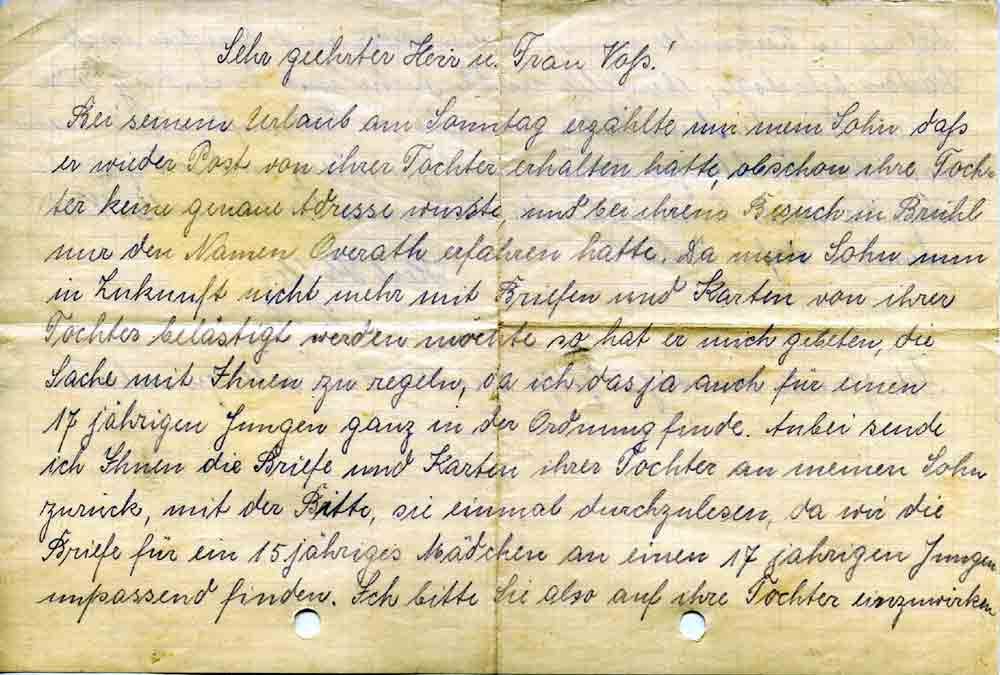 Sehr geehrter Herr u. Frau Voß!
Bei seinem Urlaub am Sonntag erzählte mir mein Sohn daß
er wieder Post von ihrer Tochter erhalten hätte, obschon ihre Toch-
ter keine genaue Adresse wusste, und bei ihrem Besuch in Brühl
nur den Namen Overath erfahren hatte. Da mein Sohn nun
in Zukunft nicht mehr mit Briefen und Karten von ihrer
Tochter belästigt werden möchte so hat er mich gebeten, die
Sache mit Ihnen zu regeln, da ich das ja auch für einen
17 jährigen Jungen ganz in der Ordnung finde. Anbei sende
ich Ihnen die Briefe und Karten ihrer Tochter an meinen Sohn
zurück, mit der Bitte, sie einmal durchzulesen, da wir die
Briefe für ein 15 jähriges Mädchen an einen 17 jährigen Jungen
unpassend finden. Ich bitte Sie also auf ihre Tochter einzuwirken